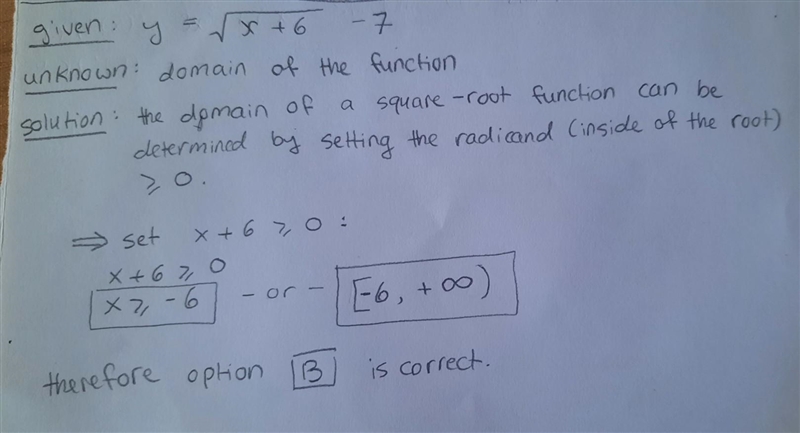 given: y = √x + 6 - 7
unknown: domain of the function
solution: the domain of a square-root function can be
determined by setting the radicand (inside of the root)
⩾ 0.
⇒ set x + 6 ⩾ 0 :
x + 6 ⩾ 0
x ⩾ -6 - or - [-6, +∞)
therefore option B is correct.